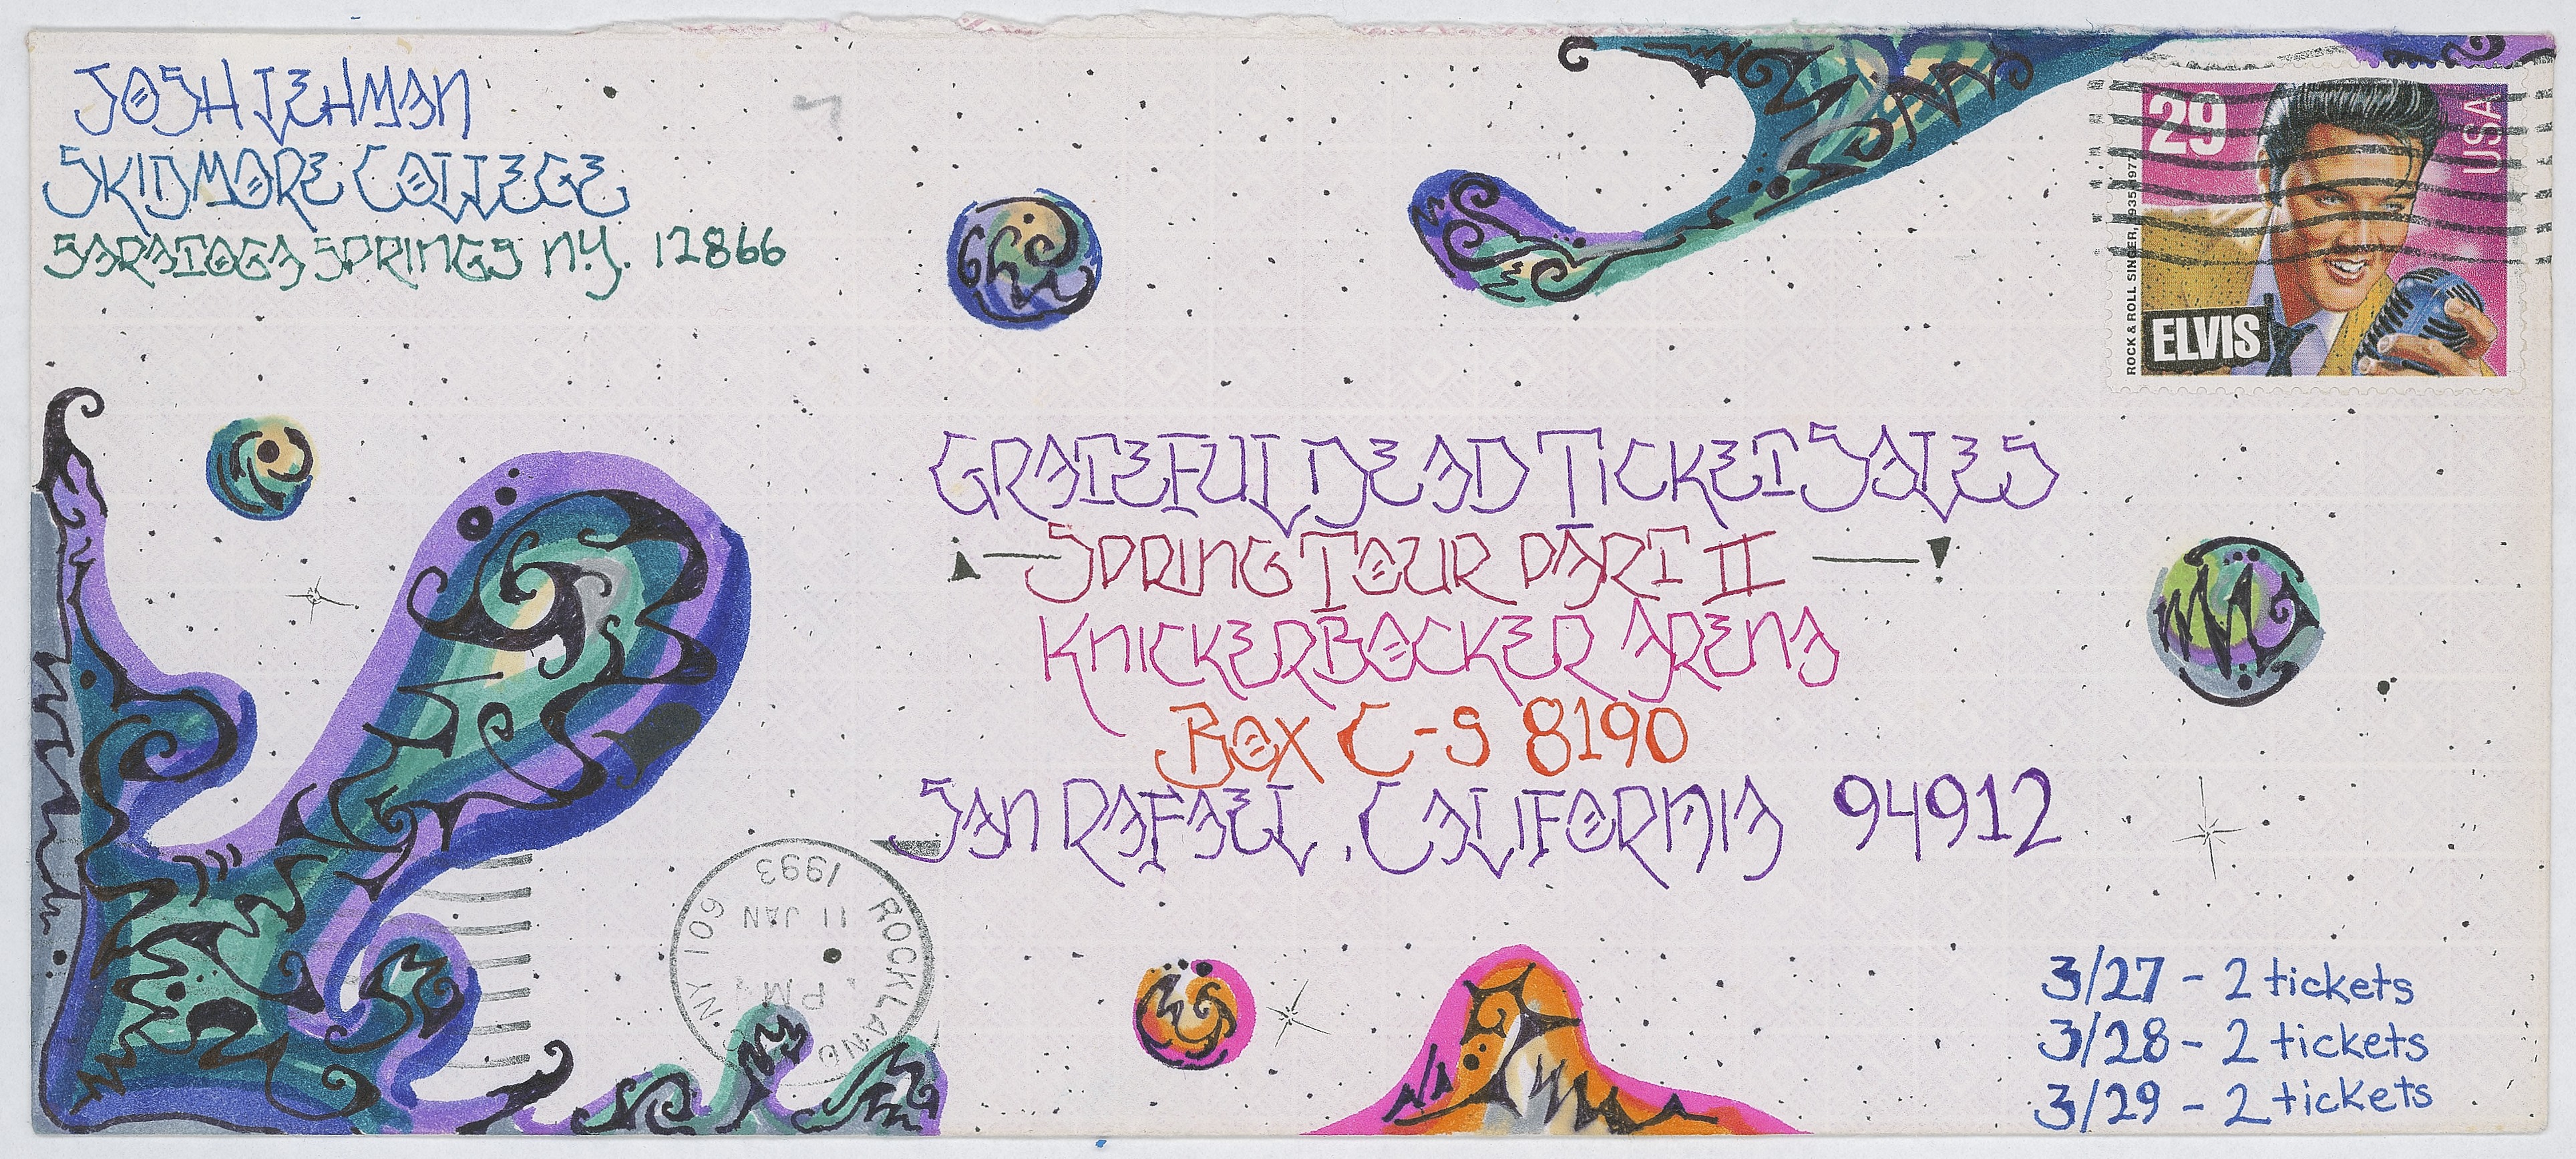 JOSH LEHMAN
SKIDMORE COLLEGE
SARATOGA SPRINGS N.Y. 12866
29
USA
ROCK & ROLL SINGER, 1935-1977
ELVIS
GRATEFUL DEAD TICKET SALES
SPRING TOUR PART II
KNICKERBOCKER ARENA
BOX C-S 8190
SAN RAFAEL, CALIFORNIA 94912
ROCKLAND NY 109
PM
11 JAN
1993
3/27 - 2 tickets
3/28 - 2 tickets
3/29 - 2 tickets